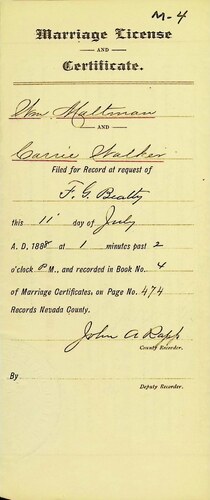 M-4
Marriage License
AND
Certificate.
Wm. Maltman
AND
Carrie Walker
Filed for Record at request of
F. G. Beatty
this 11" day of July
A. D. 1888 at 1 minutes past 2
o'clock P M., and recorded in Book No. 4
of Marriage Certificates, on Page No. 474
Records Nevada County.
John A Rapp
County Recorder.
By
Deputy Recorder.